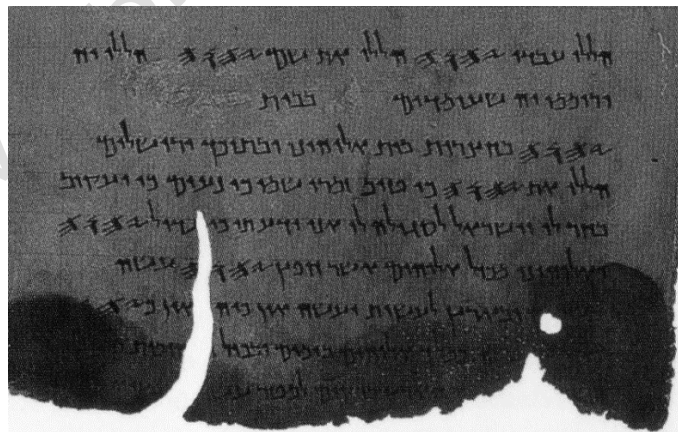 הללו עבדי 𐤉𐤄𐤅𐤄 הללו את שם 𐤉𐤄𐤅𐤄 הללו יה
ורוממו יה שעומדים בבית
𐤉𐤄𐤅𐤄 בחצרות בית אלוהינו ובתוכך ירושלים
הללו את 𐤉𐤄𐤅𐤄 כי טוב וזמרו שמו כי נעים כי יעקוב
בחר לו ישראל לסגולה לו אני ידעתי כי גדול 𐤉𐤄𐤅𐤄
ואלוהינו מכול אלוהים אשר חפץ 𐤉𐤄𐤅𐤄 עשה
ובארץ לעשות יעשה אין כיה אין כ𐤉𐤄𐤅𐤄
אלוהים בימים ובכול תהומות